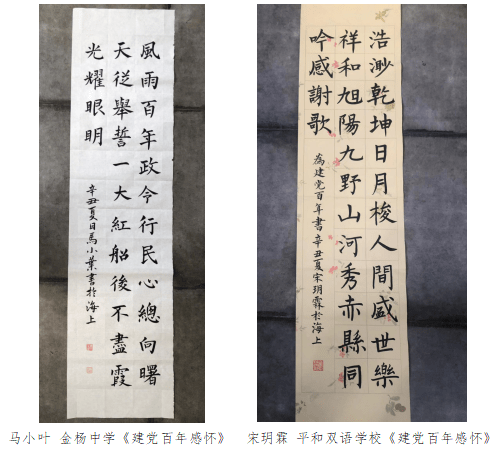 風雨百年政令行民心總向曙
天從舉誓一大紅船後不盡霞
光耀眼明
辛丑夏日馬小葉書扵海上
浩渺乾坤日月梭人間盛世樂
祥和旭陽九野山河秀赤縣同
吟感謝歌
為建党百年書辛丑夏宋玥霖扵海上
马小叶 金杨中学《建党百年感怀》
宋玥霖 平和双语学校《建党百年感怀》